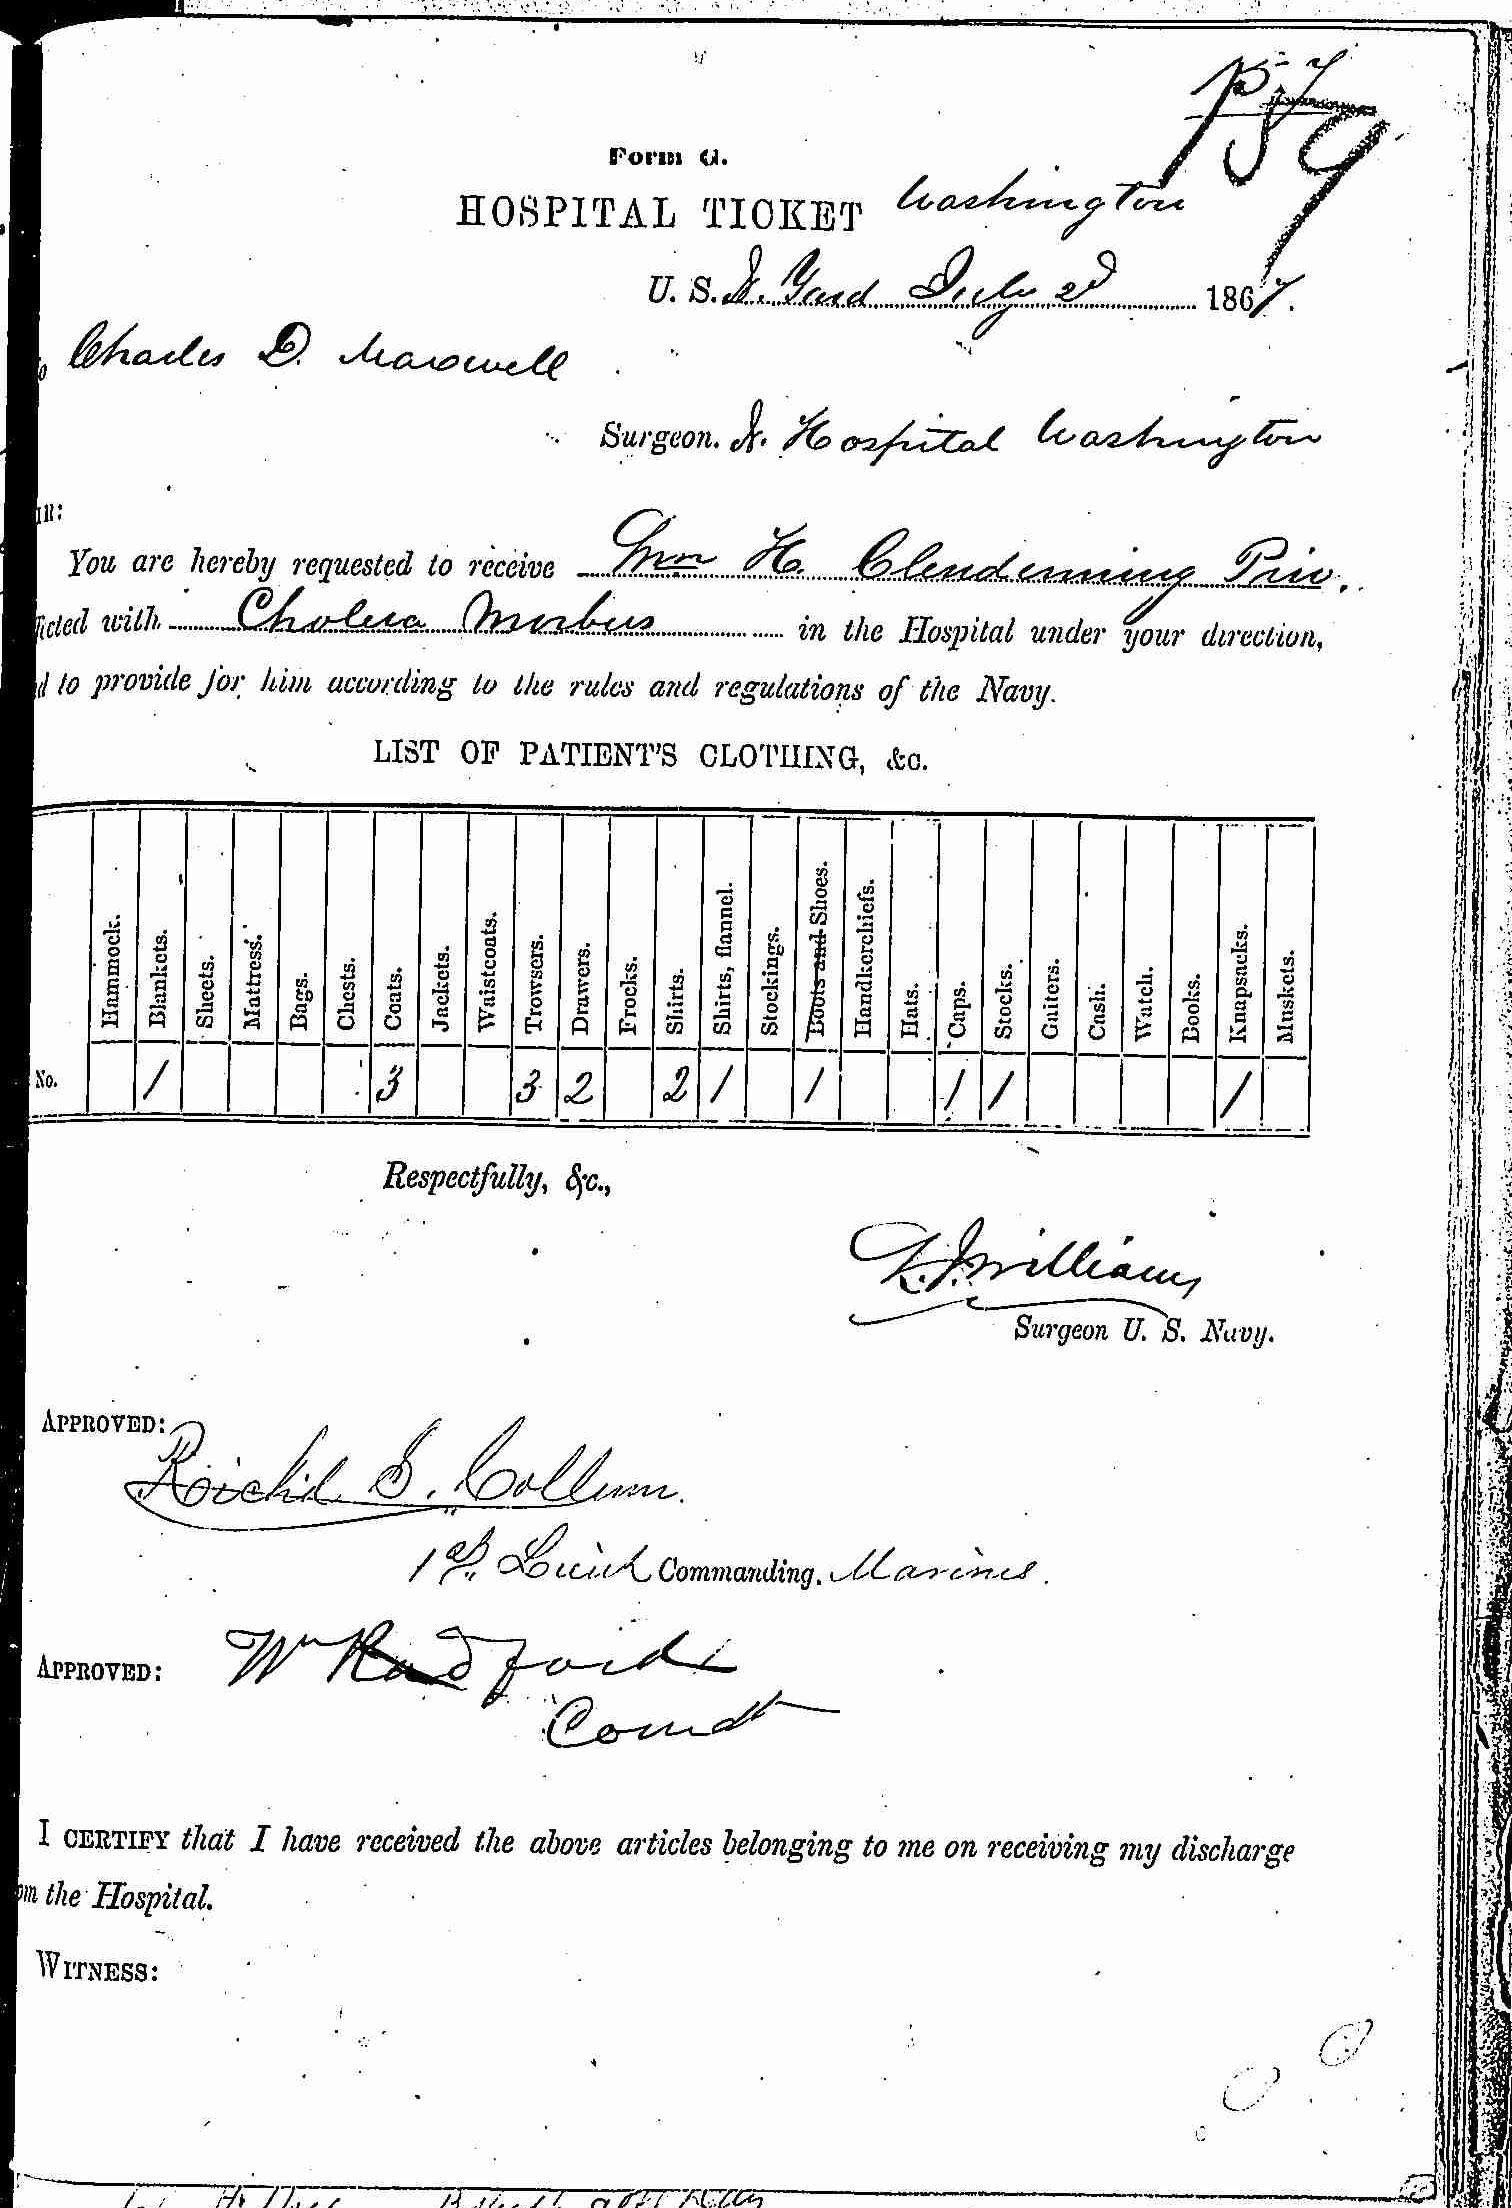 159
Form G.
HOSPITAL TICKET Washington
U. S. N. Yard July 2d 1867.
o Charles D. Maxwell
Surgeon. N. Hospital Washington
IR:
You are hereby requested to receive Wm H. Clendenning Priv.
icted with Cholera Morbus in the Hospital under your direction,
d to provide for him according to the rules and regulations of the Navy.
LIST OF PATIENT'S CLOTHING, &c.
Hammock. Blankets. Sheets. Mattress. Bags. Chests. Coats. Jackets. Waistcoats. Trowsers. Drawers. Frocks. Shirts. Shirts, flannel. Stockings. Boots and Shoes. Handkerchiefs. Hats. Caps. Stocks. Guiters. Cash. Watch. Books. Knapsacks. Muskets.
No. 1 3 3 2 2 1 1 1 1 1
Respectfully, &c.,
Williams
Surgeon U. S. Navy.
APPROVED:
Richd S. Collum.
1st Lieut Commanding. Marines.
APPROVED: Wm Radford
Comdt
I CERTIFY that I have received the above articles belonging to me on receiving my discharge
om the Hospital.
WITNESS: